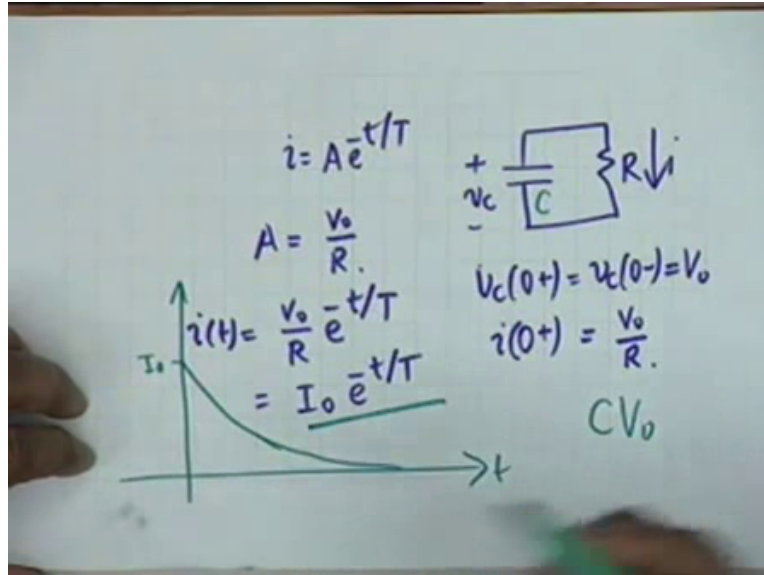 i = A e^{-t/T}
A = V₀/R.
i(t) = V₀/R e^{-t/T}
= I₀ e^{-t/T}
I₀
t
+
v_c
-
C
R
i
v_c(0+) = v_c(0-) = V₀
i(0+) = V₀/R.
CV₀